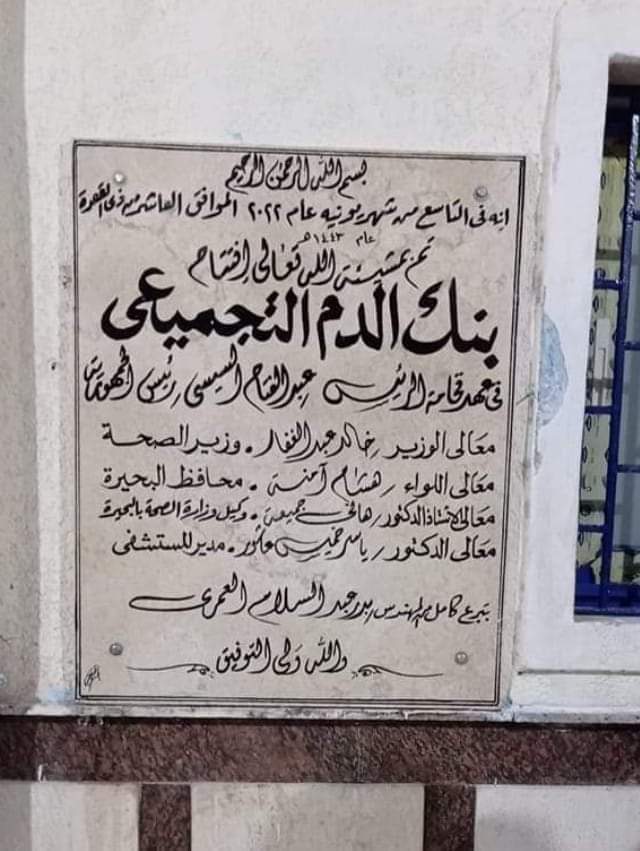 بسم الله الرحمن الرحيم
انه فى التاسع من شهر يونيه عام ٢٠٢٢ الموافق العاشر من ذى القعدة
عام ١٤٤٣هـ
تم بمشيئة الله تعالى إفتتاح
بنك الدم التجميعى
فى عهد فخامة الرئيس عبد الفتاح السيسى رئيس الجمهورية
معالى الوزير / خالد عبد الغفار . وزير الصحة
معالى اللواء / هشام آمنة . محافظ البحيرة
معالى الاستاذ الدكتور / هانى جميعة . وكيل وزارة الصحة بالبحيرة
معالى الدكتور / ياسر خميس عاكور . مدير المستشفى
بتبرع كامل من المهندس بدر عبد السلام العمرى
والله ولى التوفيق